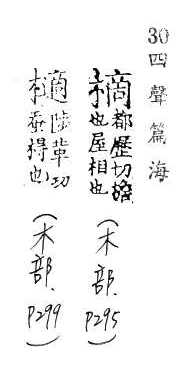 30四聲篇海
樀 都歷切檐也屋相也 (木部. P295)
陟革切蚕得也 (木部. P299)